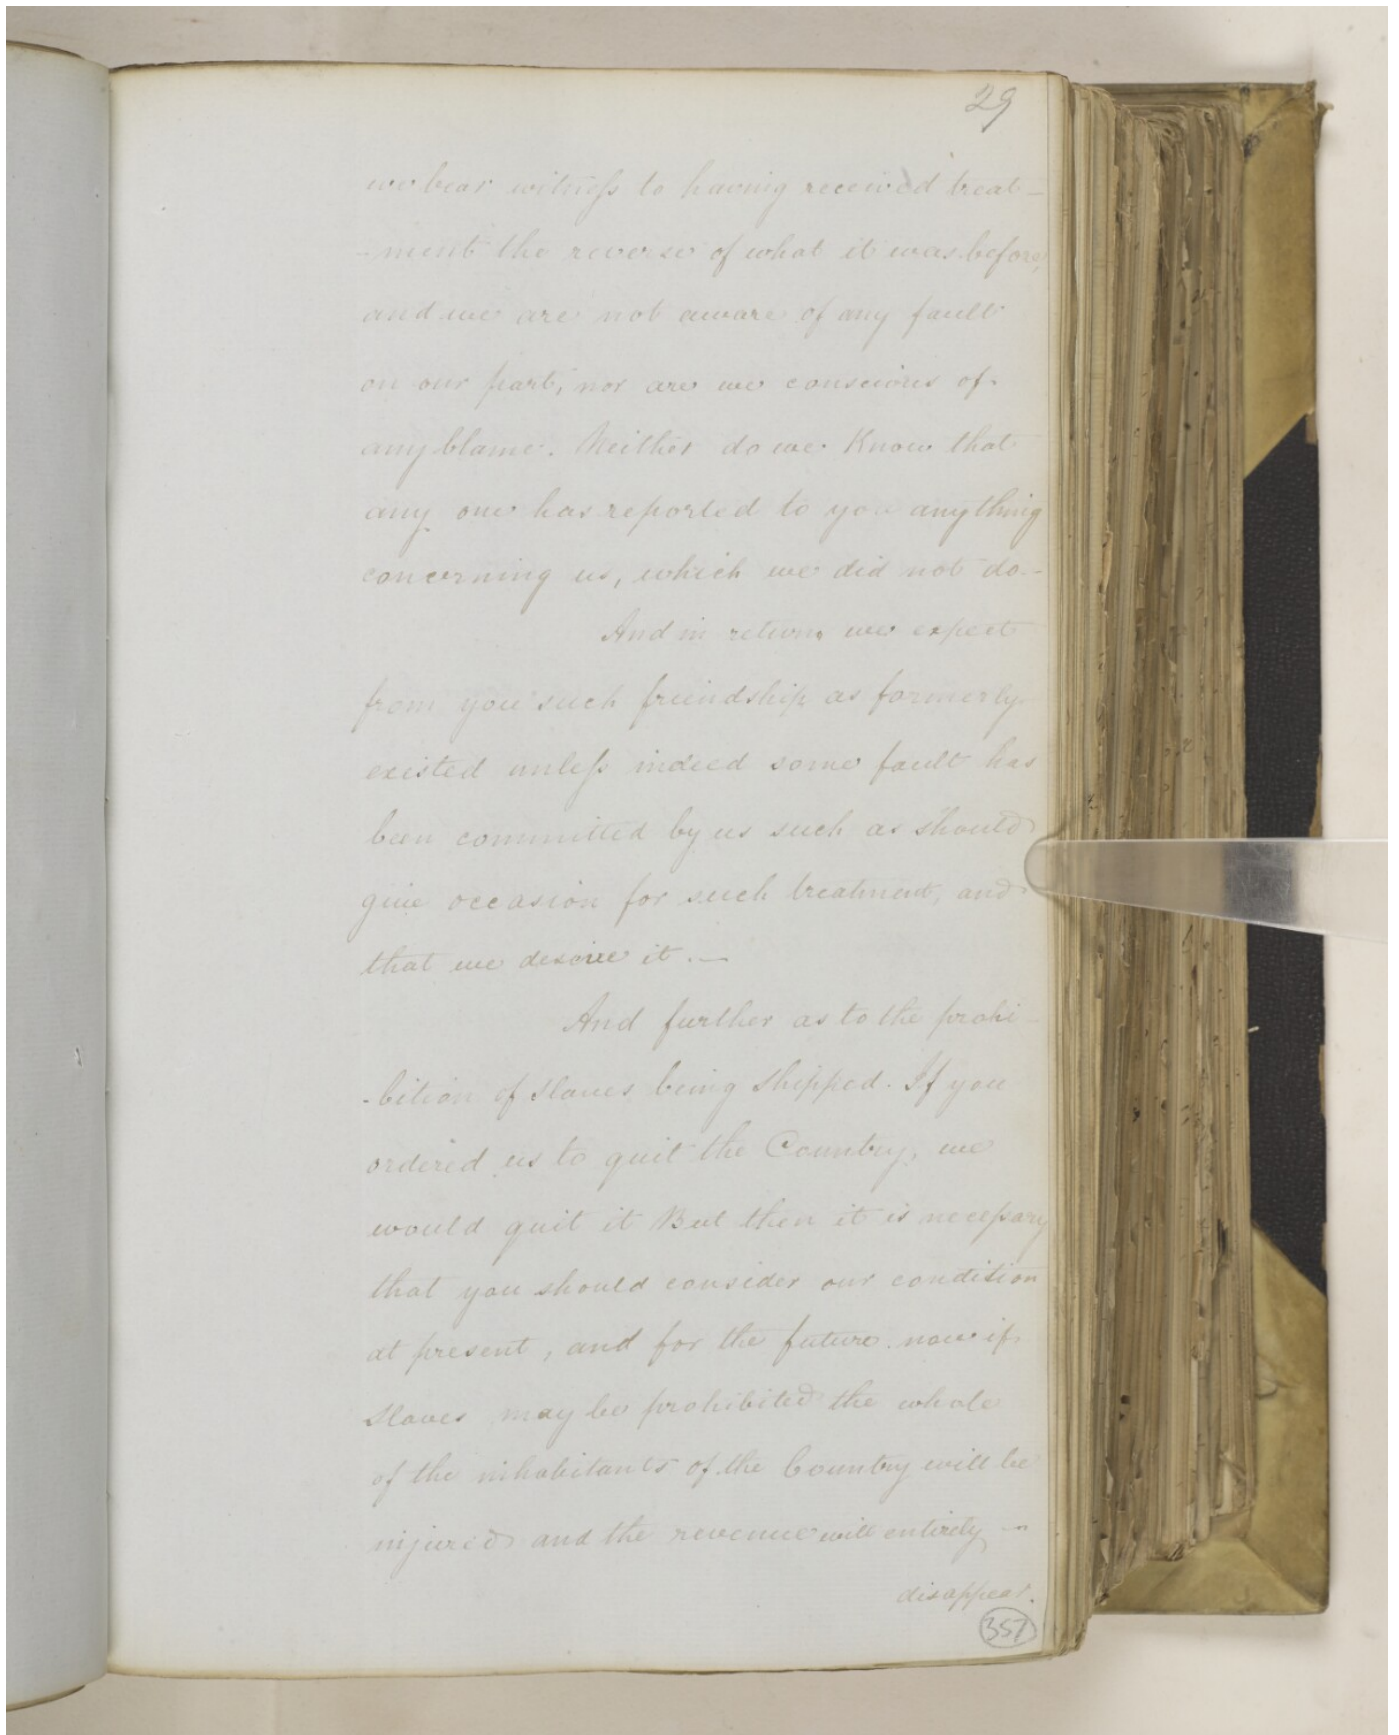 29
we bear witneſs to having received treat-
-ment the reverse of what it was before,
and we are not aware of any fault
on our part, nor are we conscious of
any blame. Neither do we Know that
any one has reported to you anything
concerning us, which we did not do -
And in return we expect
from you such friendship as formerly
existed unleſs indeed some fault has
been committed by us such as should
give occasion for such treatment, and
that we deserve it. —
And further as to the prohi-
-bition of slaves being shipped. If you
ordered us to quit the Country, we
would quit it But then it is neceſsary
that you should consider our condition
at present, and for the future. now if
slaves may be prohibited the whole
of the inhabitants of the Country will be
injured and the revenue will entirely -
disappear.
357